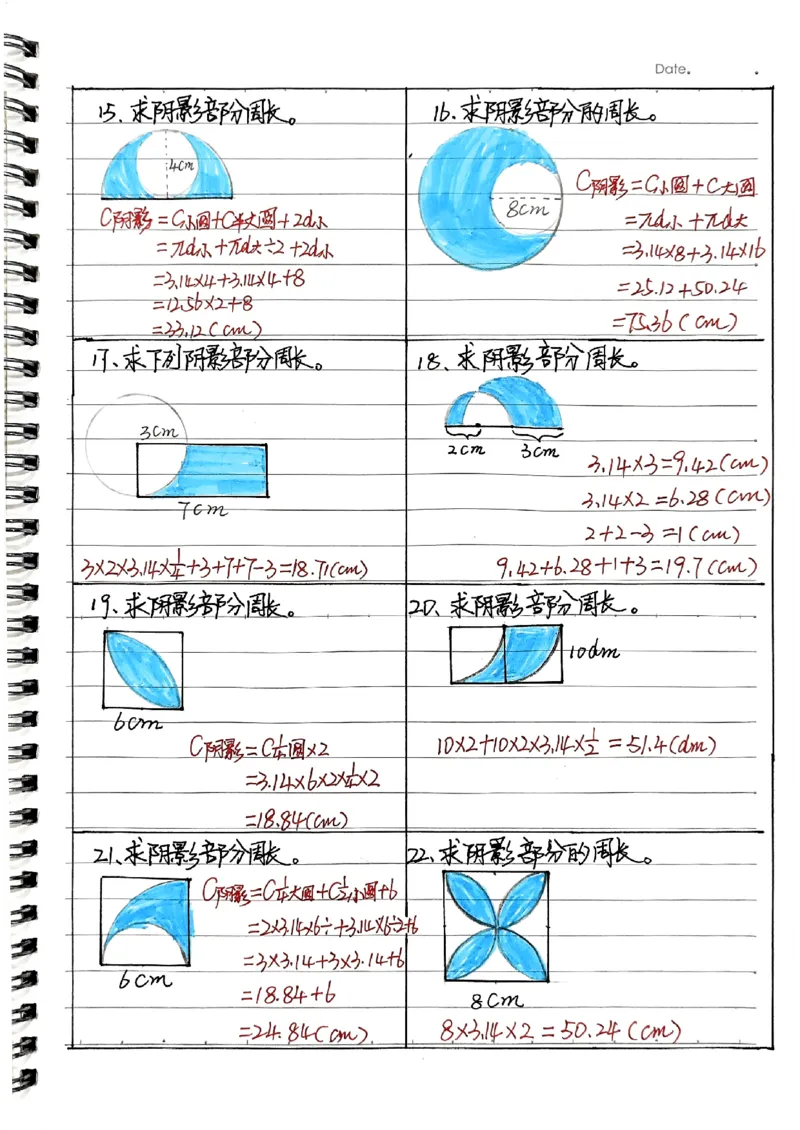 Date.
15、求阴影部分周长。
4cm
C阴影=C小圆+C半大圆+2d小
=πd小+πd大÷2+2d小
=3.14×4+3.14×4+8
=12.56×2+8
=33.12(cm)
16、求阴影部分的周长。
8cm
C阴影=C小圆+C大圆
=πd小+πd大
=3.14×8+3.14×16
=25.12+50.24
=75.36(cm)
17、求下列阴影部分周长。
3cm
7cm
3×2×3.14×1/4+3+7+7-3=18.71(cm)
18、求阴影部分周长。
2cm 3cm
3.14×3=9.42(cm)
3.14×2=6.28(cm)
2+2-3=1(cm)
9.42+6.28+1+3=19.7(cm)
19、求阴影部分周长。
6cm
C阴影=C1/4圆×2
=3.14×6×2×1/4×2
=18.84(cm)
20、求阴影部分周长。
10dm
10×2+10×2×3.14×1/2=51.4(dm)
21、求阴影部分周长。
6cm
C阴影=C1/4大圆+C1/2小圆+6
=2×3.14×6÷+3.14×6÷2+6
=3×3.14+3×3.14+6
=18.84+6
=24.84(cm)
22、求阴影部分的周长。
8cm
8×3.14×2=50.24(cm)